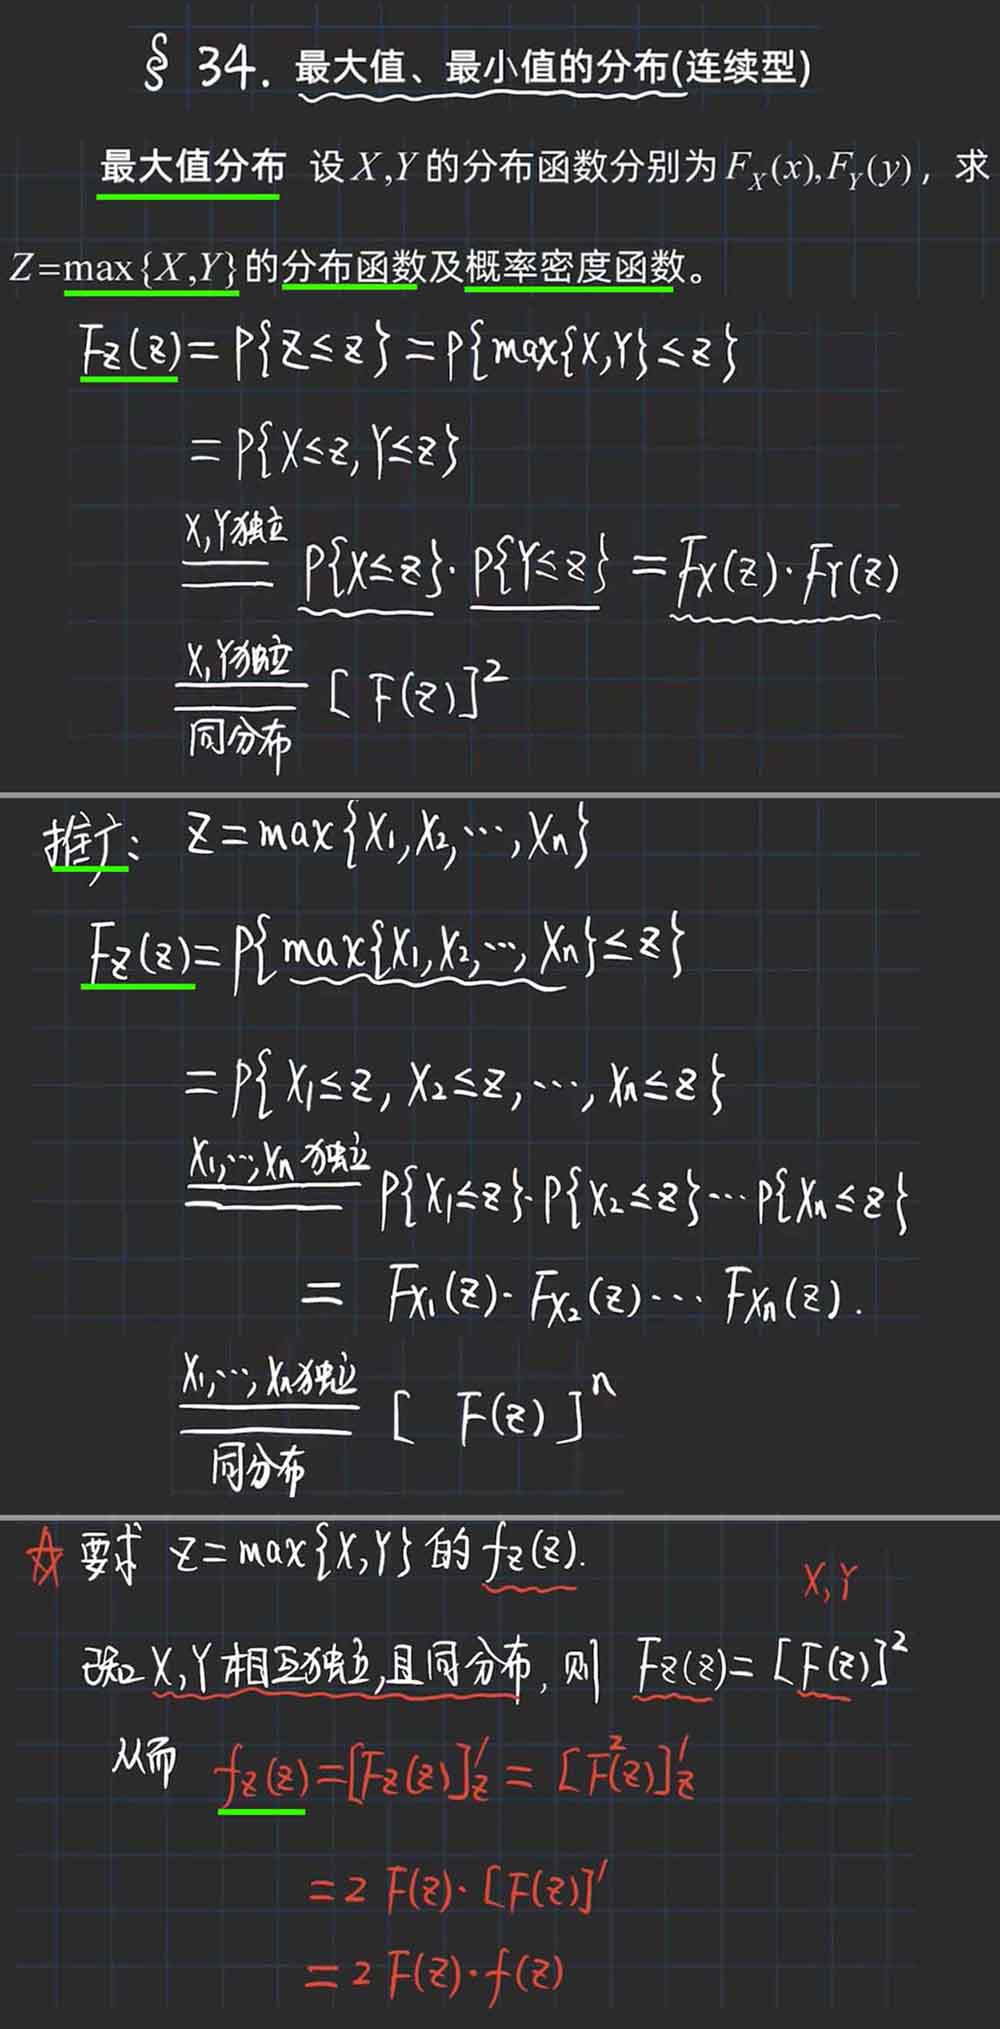 § 34. 最大值、最小值的分布(连续型)
最大值分布 设X,Y的分布函数分别为F_X(x),F_Y(y)，求
Z=max{X,Y}的分布函数及概率密度函数。
F_Z(z)=P{Z≤z}=P{max{X,Y}≤z}
=P{X≤z,Y≤z}
X,Y独立
== P{X≤z}·P{Y≤z}=F_X(z)·F_Y(z)
X,Y独立
== [F(z)]²
同分布
推广: Z=max{X₁,X₂,…,Xₙ}
F_Z(z)=P{max{X₁,X₂,…,Xₙ}≤z}
=P{X₁≤z,X₂≤z,…,Xₙ≤z}
X₁,…,Xₙ独立
== P{X₁≤z}·P{X₂≤z}…P{Xₙ≤z}
= F_X₁(z)·F_X₂(z)…F_Xₙ(z).
X₁,…,Xₙ独立
== [F(z)]ⁿ
同分布
☆要求 Z=max{X,Y}的f_Z(z).
X,Y
已知X,Y相互独立,且同分布,则 F_Z(z)=[F(z)]²
从而 f_Z(z)=[F_Z(z)]'_z=[F²(z)]'_z
=2F(z)·[F(z)]'
=2F(z)·f(z)